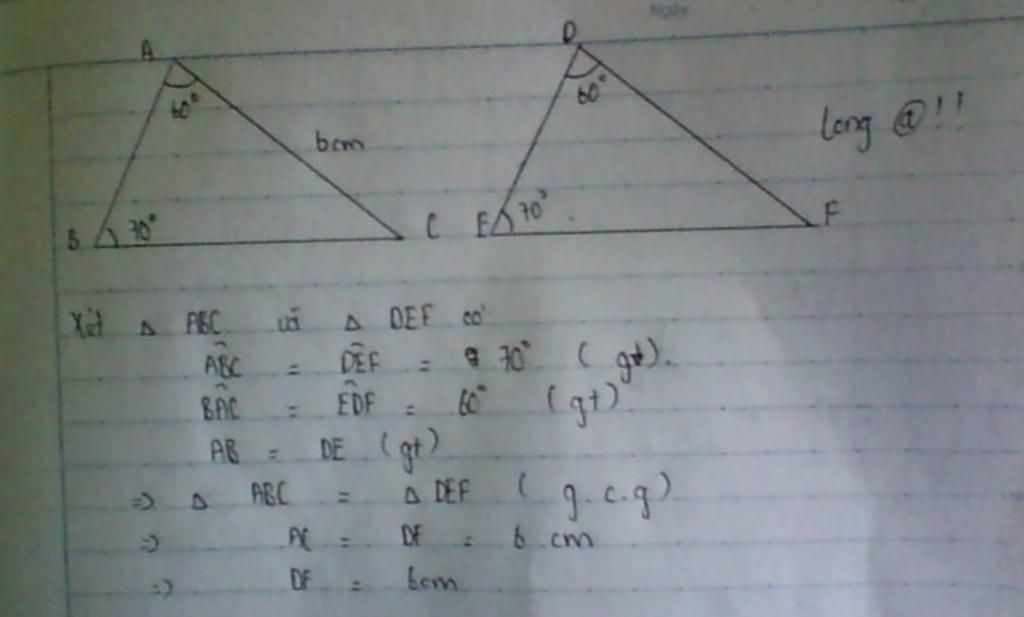 Ngày
A
60°
6cm
B
70°
C
D
60°
E
70°
F
long @!!
Xét Δ ABC và Δ DEF có
ABC = DEF = 70° (gt).
BAC = EDF = 60° (gt)
AB = DE (gt)
=> Δ ABC = Δ DEF ( g.c.g )
=> AC = DF = 6 cm
=> DF = 6cm